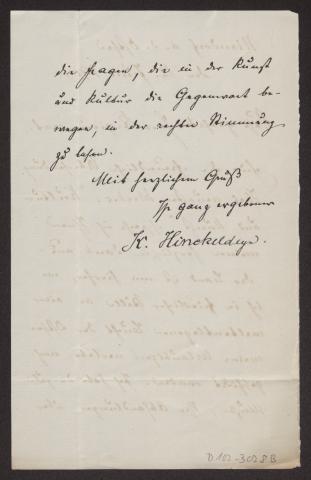 die Fragen, die in der Kunst
und Kultur die Gegenwart be-
wegen, in der rechten Stimmung
zu lesen.
Mit herzlichem Gruß
Ihr ganz ergebener
K. Hinckeldeyn.
D.102-3028 B